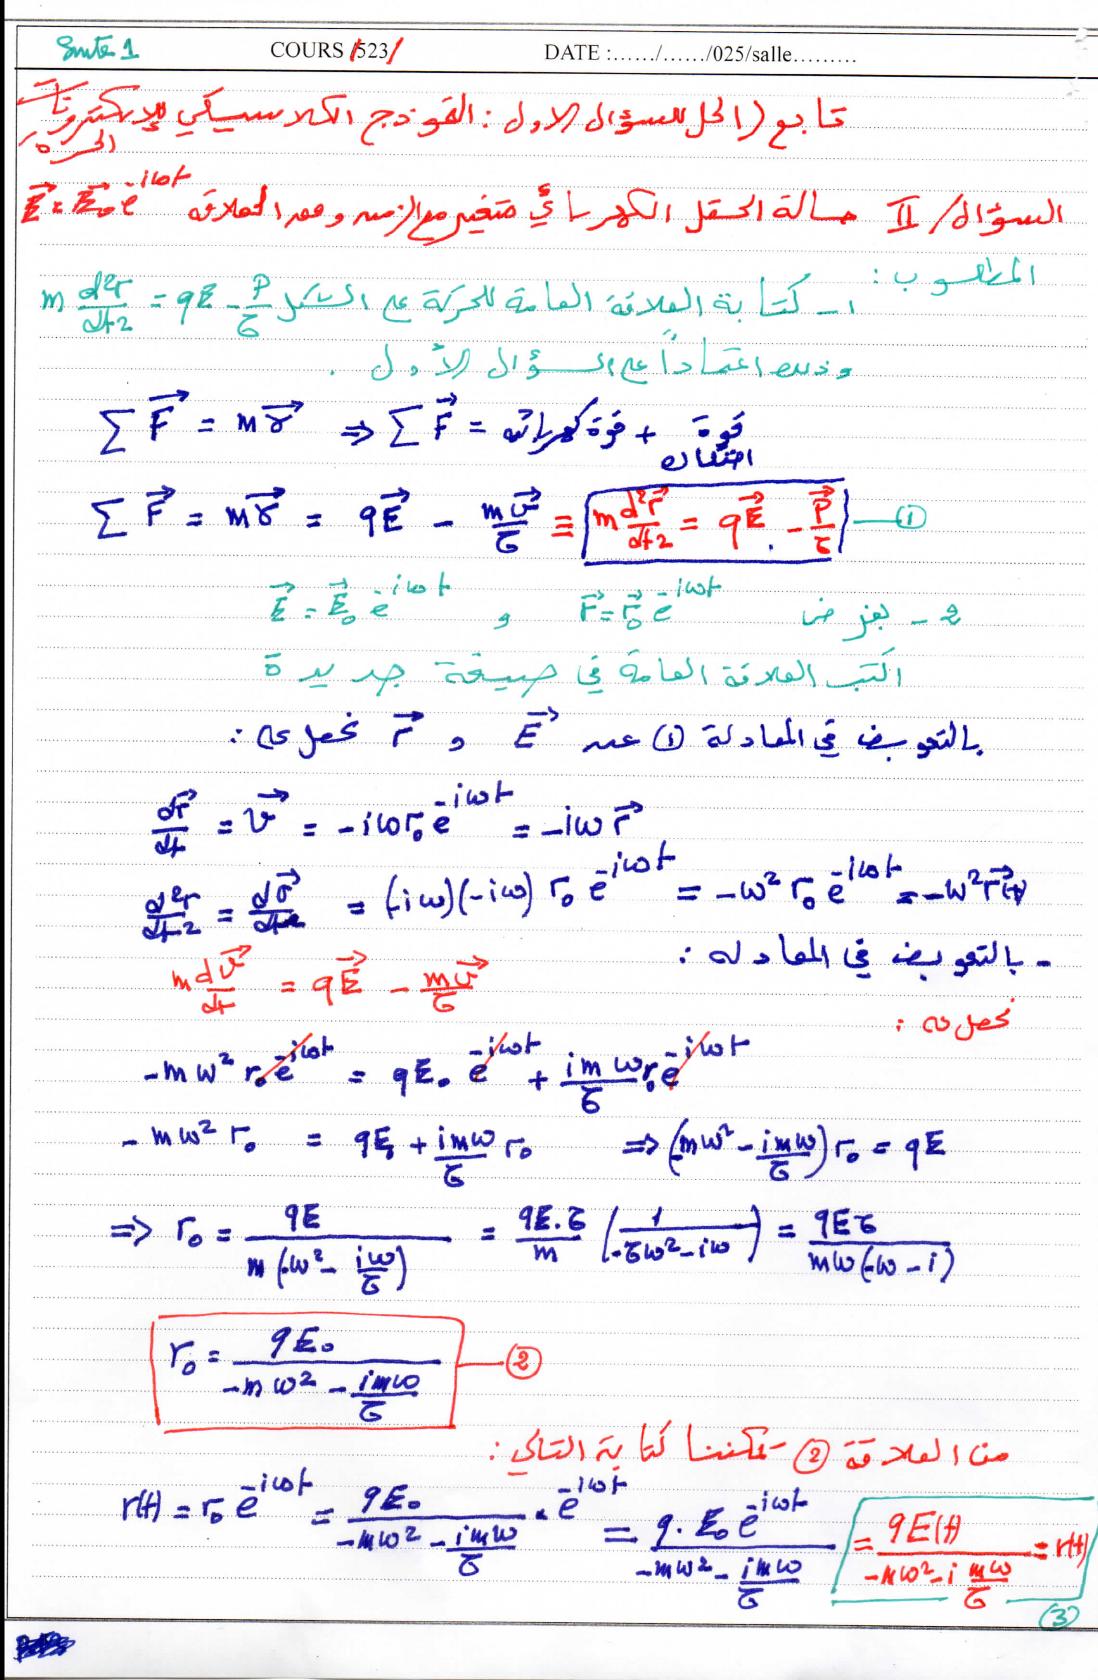 Suite 1 COURS /523/ DATE :....../....../025/salle.........
تابع (الحل للسؤال الاول : النموذج الكلاسيكي للإلكترونات
الحرة)
السؤال/ II حالة الحقل الكهربائي متغير مع الزمن وفق العلاقة E⃗ = E⃗₀ e^{-iωt}
المطلوب :
1- كتابة العلاقة العامة للحركة على الشكل m d²r/dt² = qE - P/τ
وذلك اعتماداً على السؤال الأول .
∑F⃗ = mγ⃗ ⇒ ∑F⃗ = قوة كهربائية + قوة احتكاك
∑F⃗ = mγ⃗ = qE⃗ - mv⃗/τ ≡ m d²r⃗/dt² = qE⃗ - P⃗/τ —①
2- بفرض r⃗ = r⃗₀ e^{-iωt} و E⃗ = E⃗₀ e^{-iωt}
اكتب العلاقة العامة في صيغة جديدة
بالتعويض في المعادلة ① عن E⃗ و r⃗ نحصل على :
dr⃗/dt = v⃗ = -iωr₀ e^{-iωt} = -iω r⃗
d²r/dt² = dv⃗/dt = (-iω)(-iω) r₀ e^{-iωt} = -ω² r₀ e^{-iωt} = -ω² r⃗(t)
- بالتعويض في المعادلة :
m dv⃗/dt = qE⃗ - mv⃗/τ
نحصل على :
-mω² r₀ e^{-iωt} = qE₀ e^{-iωt} + imω/τ r₀ e^{-iωt}
-mω² r₀ = qE₀ + imω/τ r₀ ⇒ (-mω² - imω/τ) r₀ = qE
⇒ r₀ = qE / m(-ω² - iω/τ) = qE.τ/m (1/(-τω² - iω)) = qEτ / mω(-ω - i)
r₀ = qE₀ / (-mω² - imω/τ) —②
من العلاقة ② يمكننا كتابة التالي :
r(t) = r₀ e^{-iωt} = qE₀ / (-mω² - imω/τ) . e^{-iωt} = q.E₀ e^{-iωt} / (-mω² - imω/τ) = qE(t) / (-mω² - i mω/τ) = r(t)
③